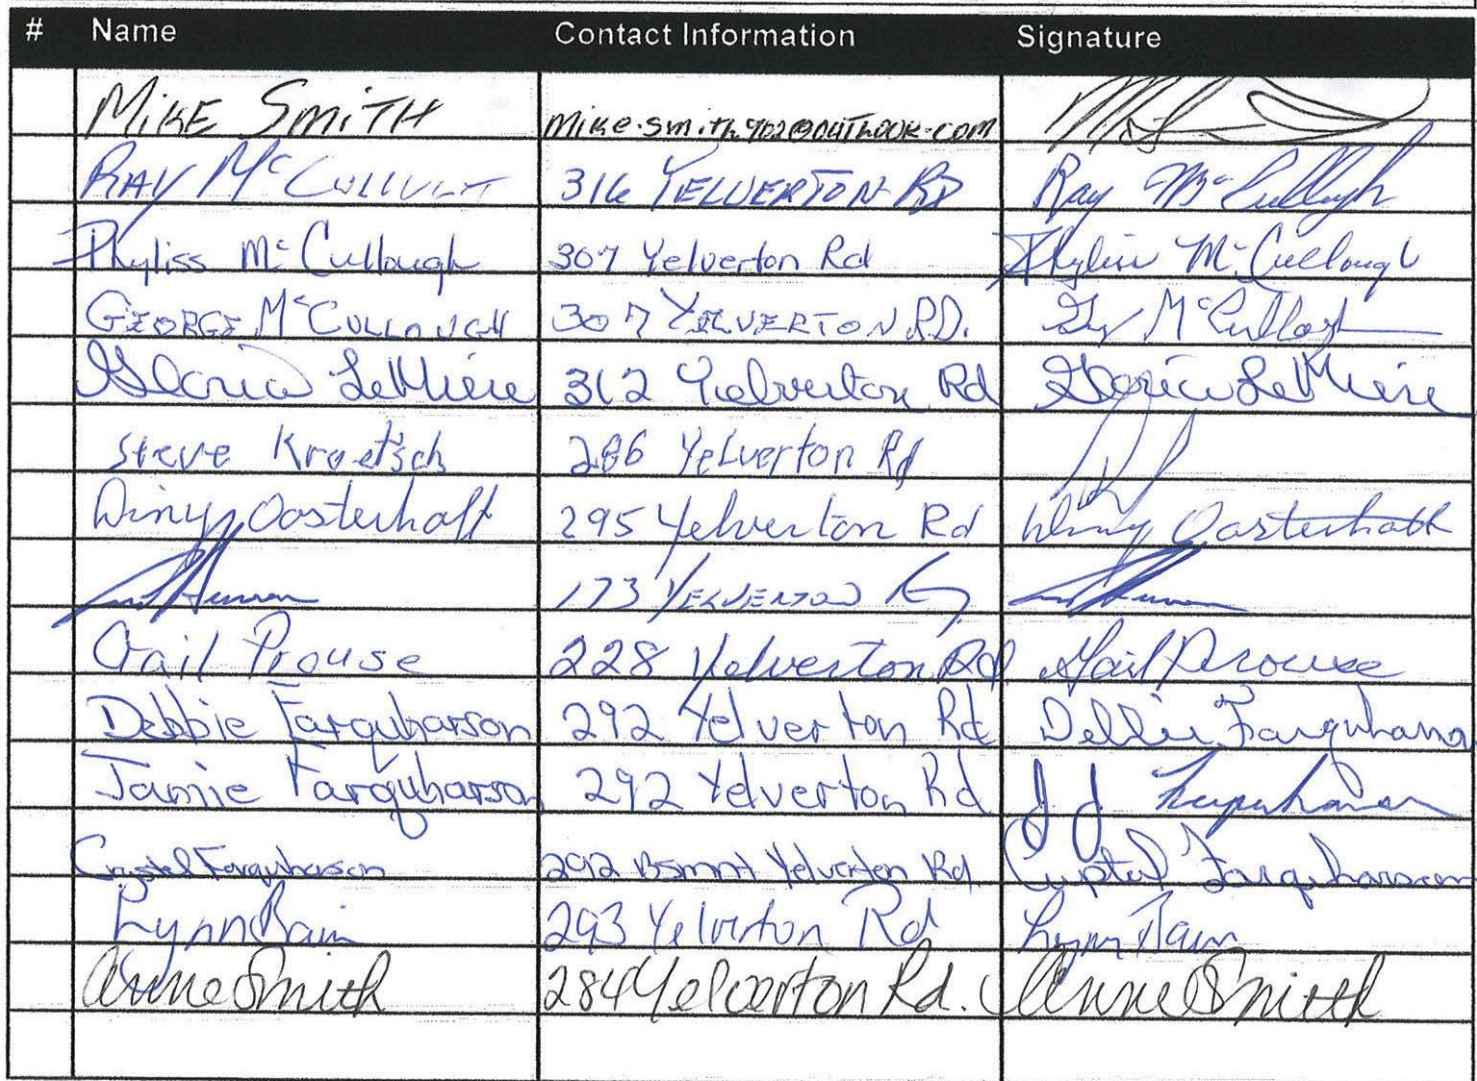 # Name Contact Information Signature
MIKE SMITH mike.smith902@outlook.com
RAY McCULLOUGH 316 YELVERTON RD Ray McCullough
Phyliss McCullough 307 Yelverton Rd Phyliss McCullough
GEORGE McCULLOUGH 307 YELVERTON RD. McCullough
Gloria LeMiere 312 Yelverton Rd Gloria LeMiere
Steve Kraetsch 286 Yelverton Rd
Diny Oosterhoff 295 Yelverton Rd Diny Oosterhoff
173 YELVERTON
Gail Prouse 228 Yelverton Rd Gail Prouse
Debbie Farquharson 292 Yelverton Rd Debbie Farquharson
Jamie Farquharson 292 Yelverton Rd J J Farquharson
Crystal Farquharson 292 Bsmnt Yelverton Rd. Crystal Farquharson
Lynn Bain 293 Yelverton Rd Lynn Bain
Anne Smith 284 Yelverton Rd. Anne Smith